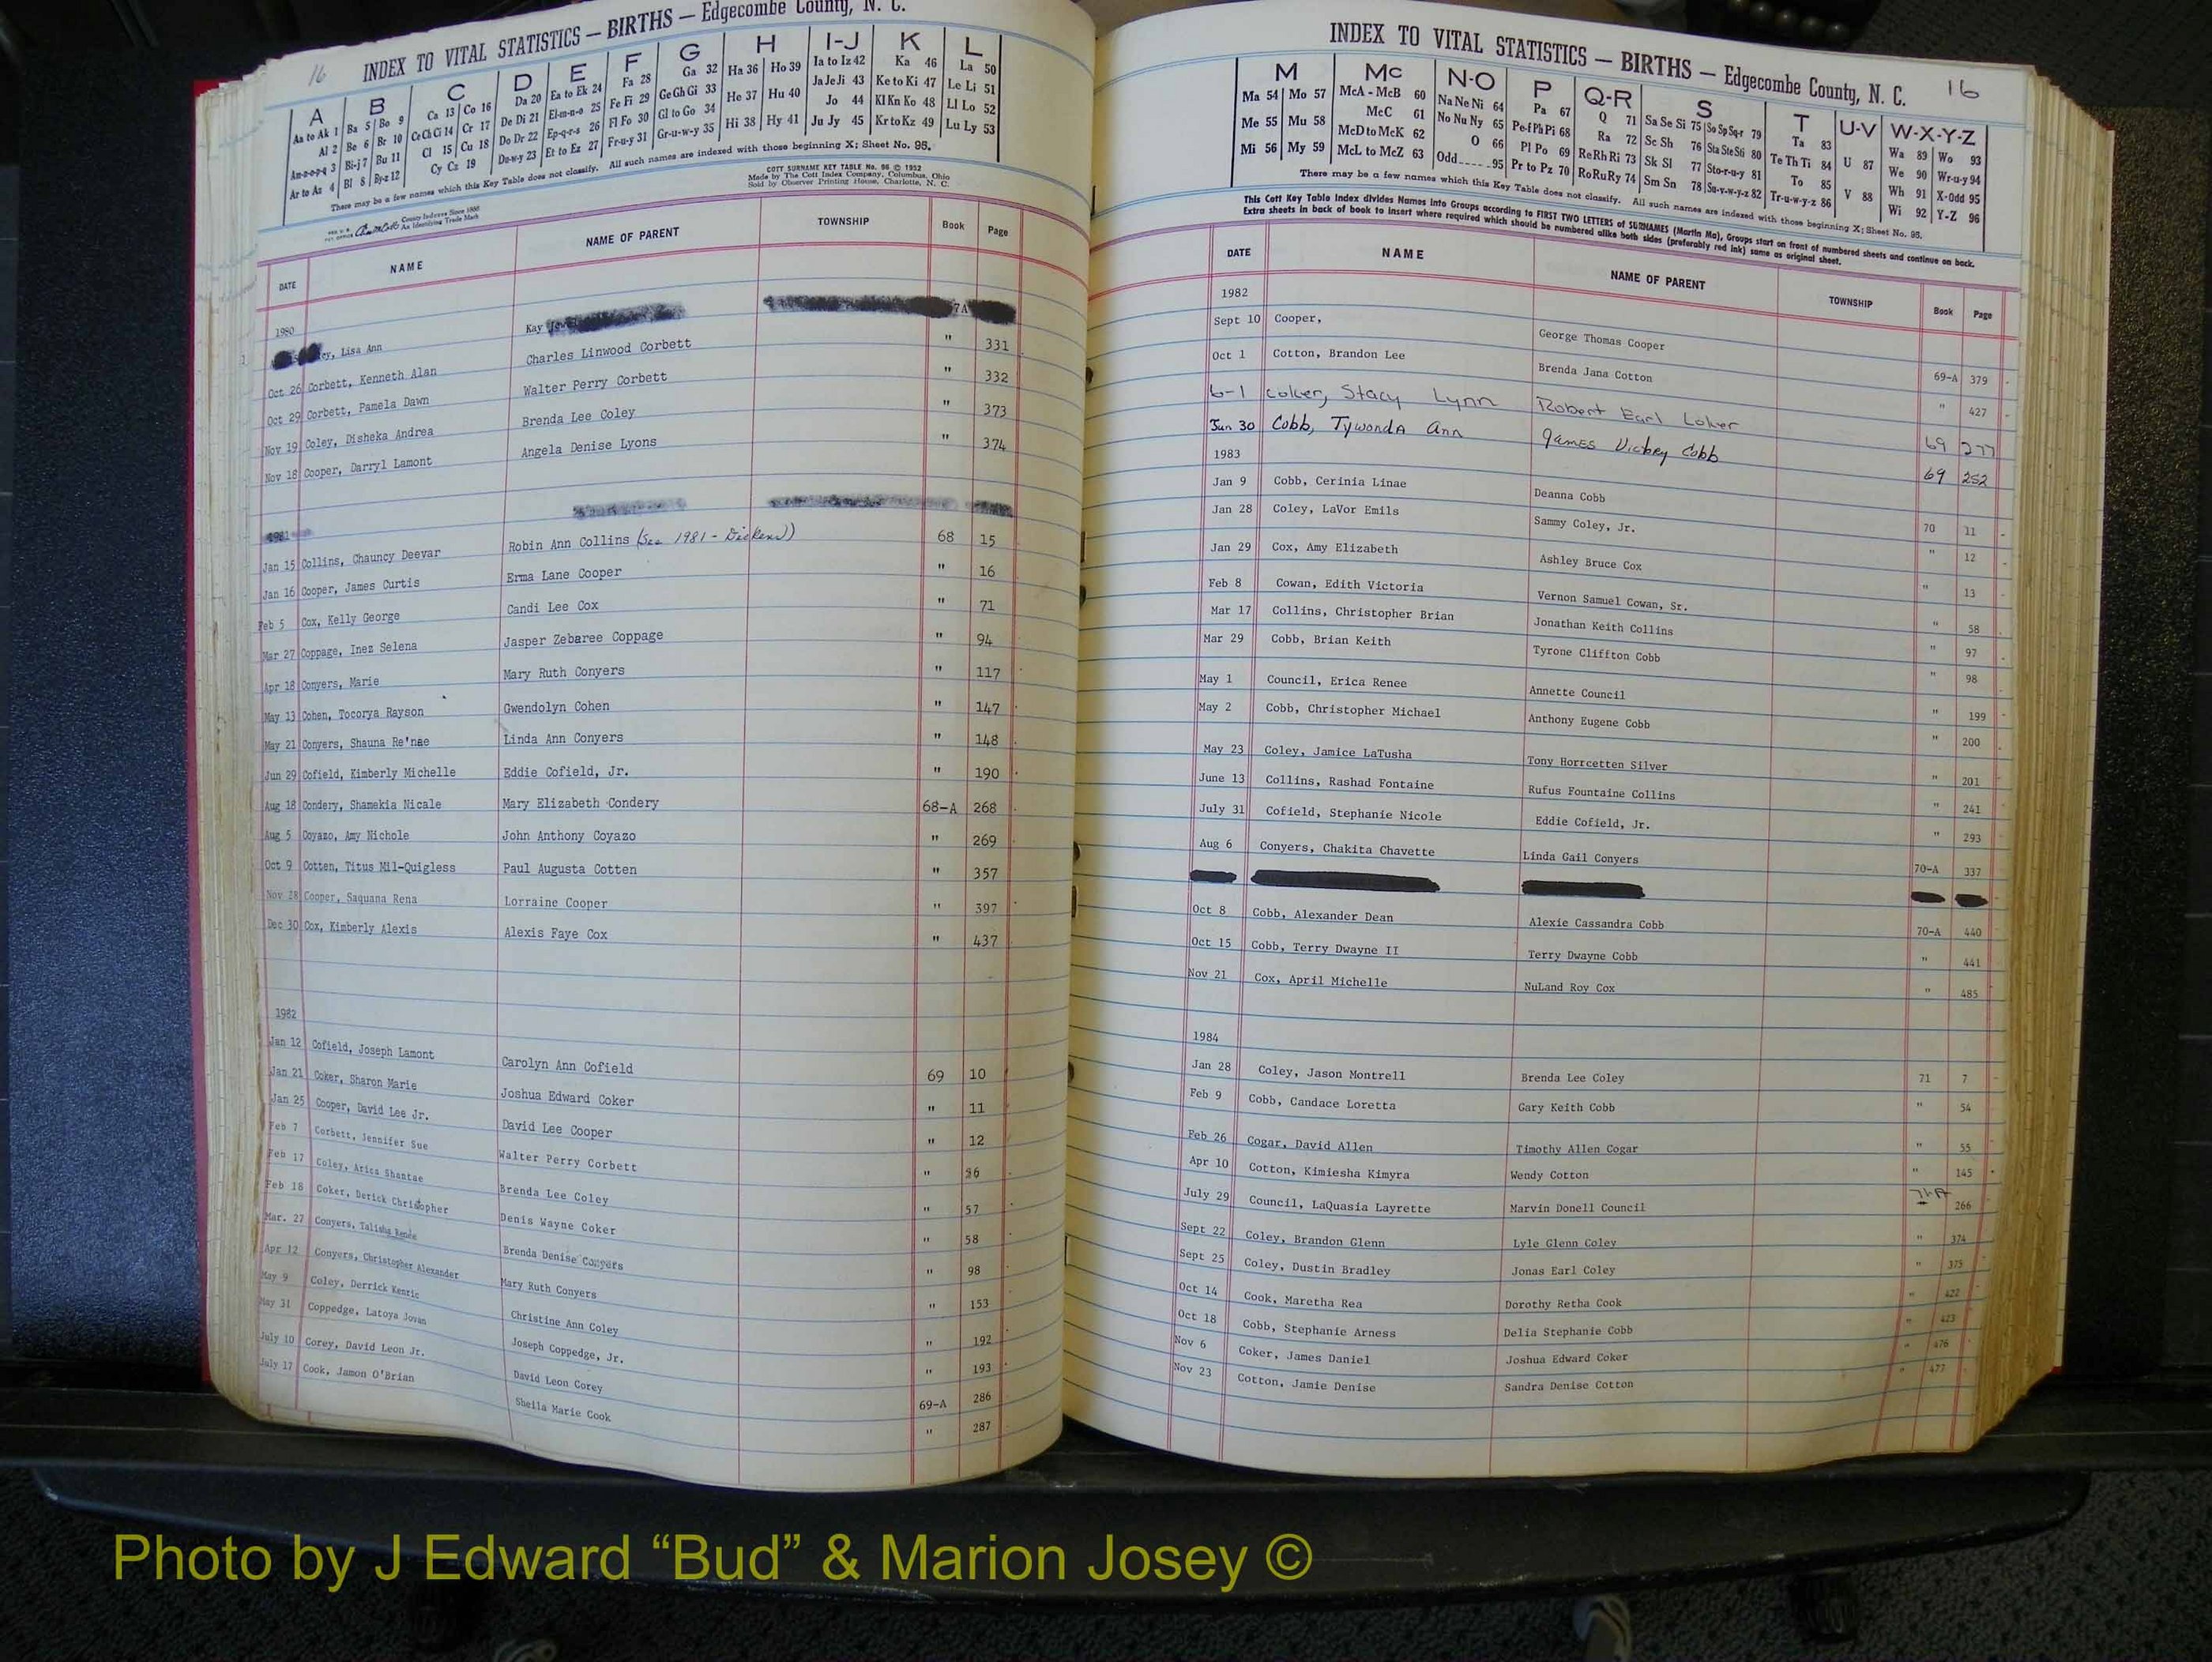 16 INDEX TO VITAL STATISTICS — BIRTHS — Edgecombe County, N. C.
A B C D E F G H I-J K L
Aa to Ak 1 Ba 5 Bo 9 Ca 13 Co 16 Da 20 Ea to Ek 24 Fa 28 Ga 32 Ha 36 Ho 39 Ia to Iz 42 Ka 46 La 50
Al 2 Be 6 Br 10 Ce Ch Ci 14 Cr 17 De Di 21 El-m-n-o 25 Fe Fi 29 Ge Gh Gi 33 He 37 Hu 40 Ja Je Ji 43 Ke to Ki 47 Le Li 51
Am-n-o-p-q 3 Bi-j 7 Bu 11 Cl 15 Cu 18 Do Dr 22 Ep-q-r-s 26 Fl Fo 30 Gl to Go 34 Hi 38 Hy 41 Jo 44 Kl Kn Ko 48 Ll Lo 52
Ar to Az 4 Bl 8 By-z 12 Cy Cz 19 Du-w-y 23 Et to Ez 27 Fr-u-y 31 Gr-u-w-y 35 Ju Jy 45 Kr to Kz 49 Lu Ly 53
There may be a few names which this Key Table does not classify. All such names are indexed with those beginning X; Sheet No. 95.
COTT SURNAME KEY TABLE No. 96 © 1952
Made by The Cott Index Company, Columbus, Ohio
Sold by Observer Printing House, Charlotte, N. C.
County Indexes Since 1888
An Identifying Trade Mark
DATE NAME NAME OF PARENT TOWNSHIP Book Page
1980
ey, Lisa Ann Kay 7A
Oct 26 Corbett, Kenneth Alan Charles Linwood Corbett " 331
Oct 29 Corbett, Pamela Dawn Walter Perry Corbett " 332
Nov 19 Coley, Disheka Andrea Brenda Lee Coley " 373
Nov 18 Cooper, Darryl Lamont Angela Denise Lyons " 374
1981
Jan 15 Collins, Chauncy Deevar Robin Ann Collins (See 1981 - Dickens) 68 15
Jan 16 Cooper, James Curtis Erma Lane Cooper " 16
Feb 5 Cox, Kelly George Candi Lee Cox " 71
Mar 27 Coppage, Inez Selena Jasper Zebaree Coppage " 94
Apr 18 Conyers, Marie Mary Ruth Conyers " 117
May 13 Cohen, Tocorya Rayson Gwendolyn Cohen " 147
May 21 Conyers, Shauna Re'nae Linda Ann Conyers " 148
Jun 29 Cofield, Kimberly Michelle Eddie Cofield, Jr. " 190
Aug 18 Condery, Shamekia Nicale Mary Elizabeth Condery 68-A 268
Aug 5 Coyazo, Amy Nichole John Anthony Coyazo " 269
Oct 9 Cotten, Titus Mil-Quigless Paul Augusta Cotten " 357
Nov 28 Cooper, Saquana Rena Lorraine Cooper " 397
Dec 30 Cox, Kimberly Alexis Alexis Faye Cox " 437
1982
Jan 12 Cofield, Joseph Lamont Carolyn Ann Cofield 69 10
Jan 21 Coker, Sharon Marie Joshua Edward Coker " 11
Jan 25 Cooper, David Lee Jr. David Lee Cooper " 12
Feb 7 Corbett, Jennifer Sue Walter Perry Corbett " 36
Feb 17 Coley, Arica Shantae Brenda Lee Coley " 57
Feb 18 Coker, Derick Christopher Denis Wayne Coker " 58
Mar. 27 Conyers, Talisha Renée Brenda Denise Conyers " 98
Apr 12 Conyers, Christopher Alexander Mary Ruth Conyers " 153
May 9 Coley, Derrick Kenric Christine Ann Coley " 192
May 31 Coppedge, Latoya Jovan Joseph Coppedge, Jr. " 193
July 10 Corey, David Leon Jr. David Leon Corey 69-A 286
July 17 Cook, Jamon O'Brian Sheila Marie Cook " 287
INDEX TO VITAL STATISTICS — BIRTHS — Edgecombe County, N. C. 16
M Mc N-O P Q-R S T U-V W-X-Y-Z
Ma 54 Mo 57 McA - McB 60 Na Ne Ni 64 Pa 67 Q 71 Sa Se Si 75 So Sp Sq-r 79 Ta 83 U 87 Wa 89 Wo 93
Me 55 Mu 58 McC 61 No Nu Ny 65 Pe-f Ph Pi 68 Ra 72 Sc Sh 76 Sta Ste Sti 80 Te Th Ti 84 V 88 We 90 Wr-u-y 94
Mi 56 My 59 McD to McK 62 O 66 Pl Po 69 Re Rh Ri 73 Sk Sl 77 Sto-r-u-y 81 To 85 Wh 91 X-Odd 95
McL to McZ 63 Odd 95 Pr to Pz 70 Ro Ru Ry 74 Sm Sn 78 Su-v-w-y-z 82 Tr-u-w-y-z 86 Wi 92 Y-Z 96
There may be a few names which this Key Table does not classify. All such names are indexed with those beginning X; Sheet No. 95.
This Cott Key Table Index divides Names into Groups according to FIRST TWO LETTERS of SURNAMES (Martin Ma), Groups start on front of numbered sheets and continue on back.
Extra sheets in back of book to insert where required which should be numbered alike both sides (preferably red ink) same as original sheet.
DATE NAME NAME OF PARENT TOWNSHIP Book Page
1982
Sept 10 Cooper, George Thomas Cooper 69-A 379
Oct 1 Cotton, Brandon Lee Brenda Jana Cotton " 427
6-1 Coker, Stacy Lynn Robert Earl Coker 69 277
Jun 30 Cobb, Tywonda Ann James Vickey Cobb 69 252
1983
Jan 9 Cobb, Cerinia Linae Deanna Cobb 70 11
Jan 28 Coley, LaVor Emils Sammy Coley, Jr. " 12
Jan 29 Cox, Amy Elizabeth Ashley Bruce Cox " 13
Feb 8 Cowan, Edith Victoria Vernon Samuel Cowan, Sr. " 58
Mar 17 Collins, Christopher Brian Jonathan Keith Collins " 97
Mar 29 Cobb, Brian Keith Tyrone Cliffton Cobb " 98
May 1 Council, Erica Renee Annette Council " 199
May 2 Cobb, Christopher Michael Anthony Eugene Cobb " 200
May 23 Coley, Jamice LaTusha Tony Horrcetten Silver " 201
June 13 Collins, Rashad Fontaine Rufus Fountaine Collins " 241
July 31 Cofield, Stephanie Nicole Eddie Cofield, Jr. " 293
Aug 6 Conyers, Chakita Chavette Linda Gail Conyers 70-A 337
Oct 8 Cobb, Alexander Dean Alexie Cassandra Cobb 70-A 440
Oct 15 Cobb, Terry Dwayne II Terry Dwayne Cobb " 441
Nov 21 Cox, April Michelle NuLand Roy Cox " 485
1984
Jan 28 Coley, Jason Montrell Brenda Lee Coley 71 7
Feb 9 Cobb, Candace Loretta Gary Keith Cobb " 54
Feb 26 Cogar, David Allen Timothy Allen Cogar " 55
Apr 10 Cotton, Kimiesha Kimyra Wendy Cotton " 145
July 29 Council, LaQuasia Layrette Marvin Donell Council 71-A 266
Sept 22 Coley, Brandon Glenn Lyle Glenn Coley " 374
Sept 25 Coley, Dustin Bradley Jonas Earl Coley " 375
Oct 14 Cook, Maretha Rea Dorothy Retha Cook " 422
Oct 18 Cobb, Stephanie Arness Delia Stephanie Cobb " 423
Nov 6 Coker, James Daniel Joshua Edward Coker " 476
Nov 23 Cotton, Jamie Denise Sandra Denise Cotton " 477
Photo by J Edward “Bud” & Marion Josey ©